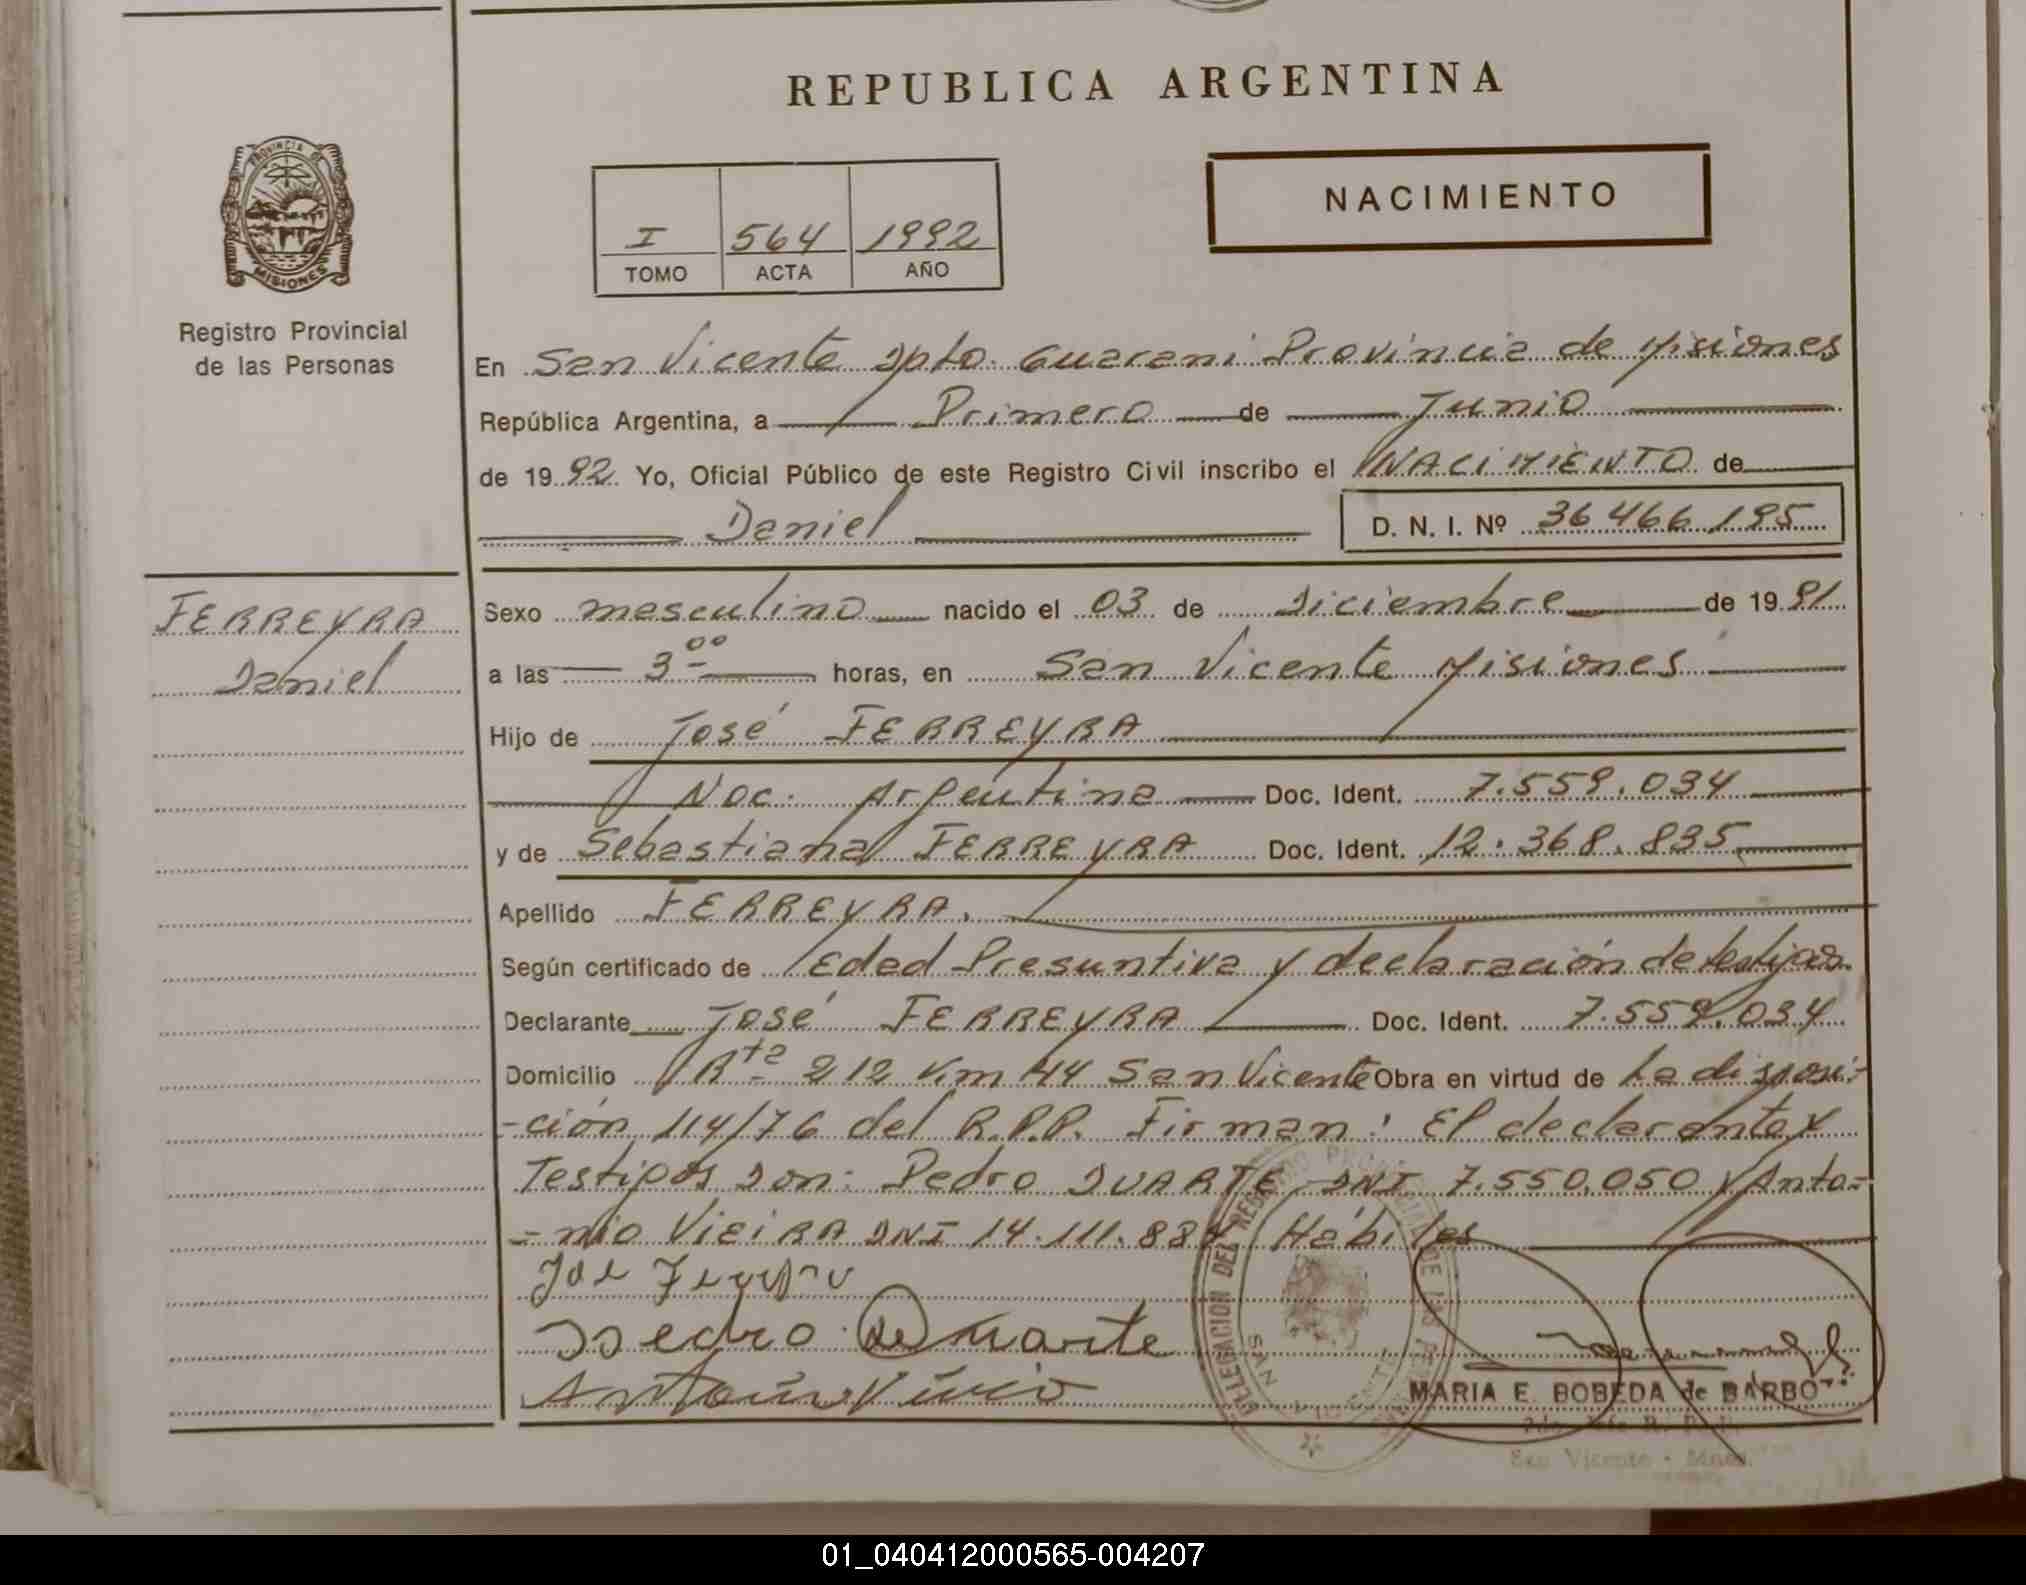 REPUBLICA ARGENTINA
PROVINCIA DE
MISIONES
Registro Provincial
de las Personas
NACIMIENTO
I 564 1992
TOMO ACTA AÑO
En San Vicente Dpto. Guarani Provincia de Misiones
República Argentina, a Primero de Junio
de 1992 Yo, Oficial Público de este Registro Civil inscribo el NACIMIENTO de
Daniel D. N. I. Nº 36466.195
FERREYRA
Daniel
Sexo masculino nacido el 03 de Diciembre de 1991
a las 3 ºº horas, en San Vicente Misiones
Hijo de José FERREYRA
Nac. Argentina Doc. Ident. 7.559.034
y de Sebastiana FERREYRA Doc. Ident. 12.368.835
Apellido FERREYRA.
Según certificado de Edad Presuntiva y declaración de testigos
Declarante José FERREYRA Doc. Ident. 7.559.034
Domicilio Rta 212 Km 44 San Vicente Obra en virtud de La disposi-
-ción 114/76 del R.P.P. Firman: El declarante y
Testigos Don: Pedro DUARTE DNI 7.550.050 y Anto=
=nio VIEIRA DNI 14.111.887 Hábiles
Pedro De Duarte
DELEGACION DEL REGISTRO PROVINCIAL DE LAS PERSONAS
SAN VICENTE
MARIA E. BOBEDA de BARBO
San Vicente - Mnes.
01_040412000565-004207